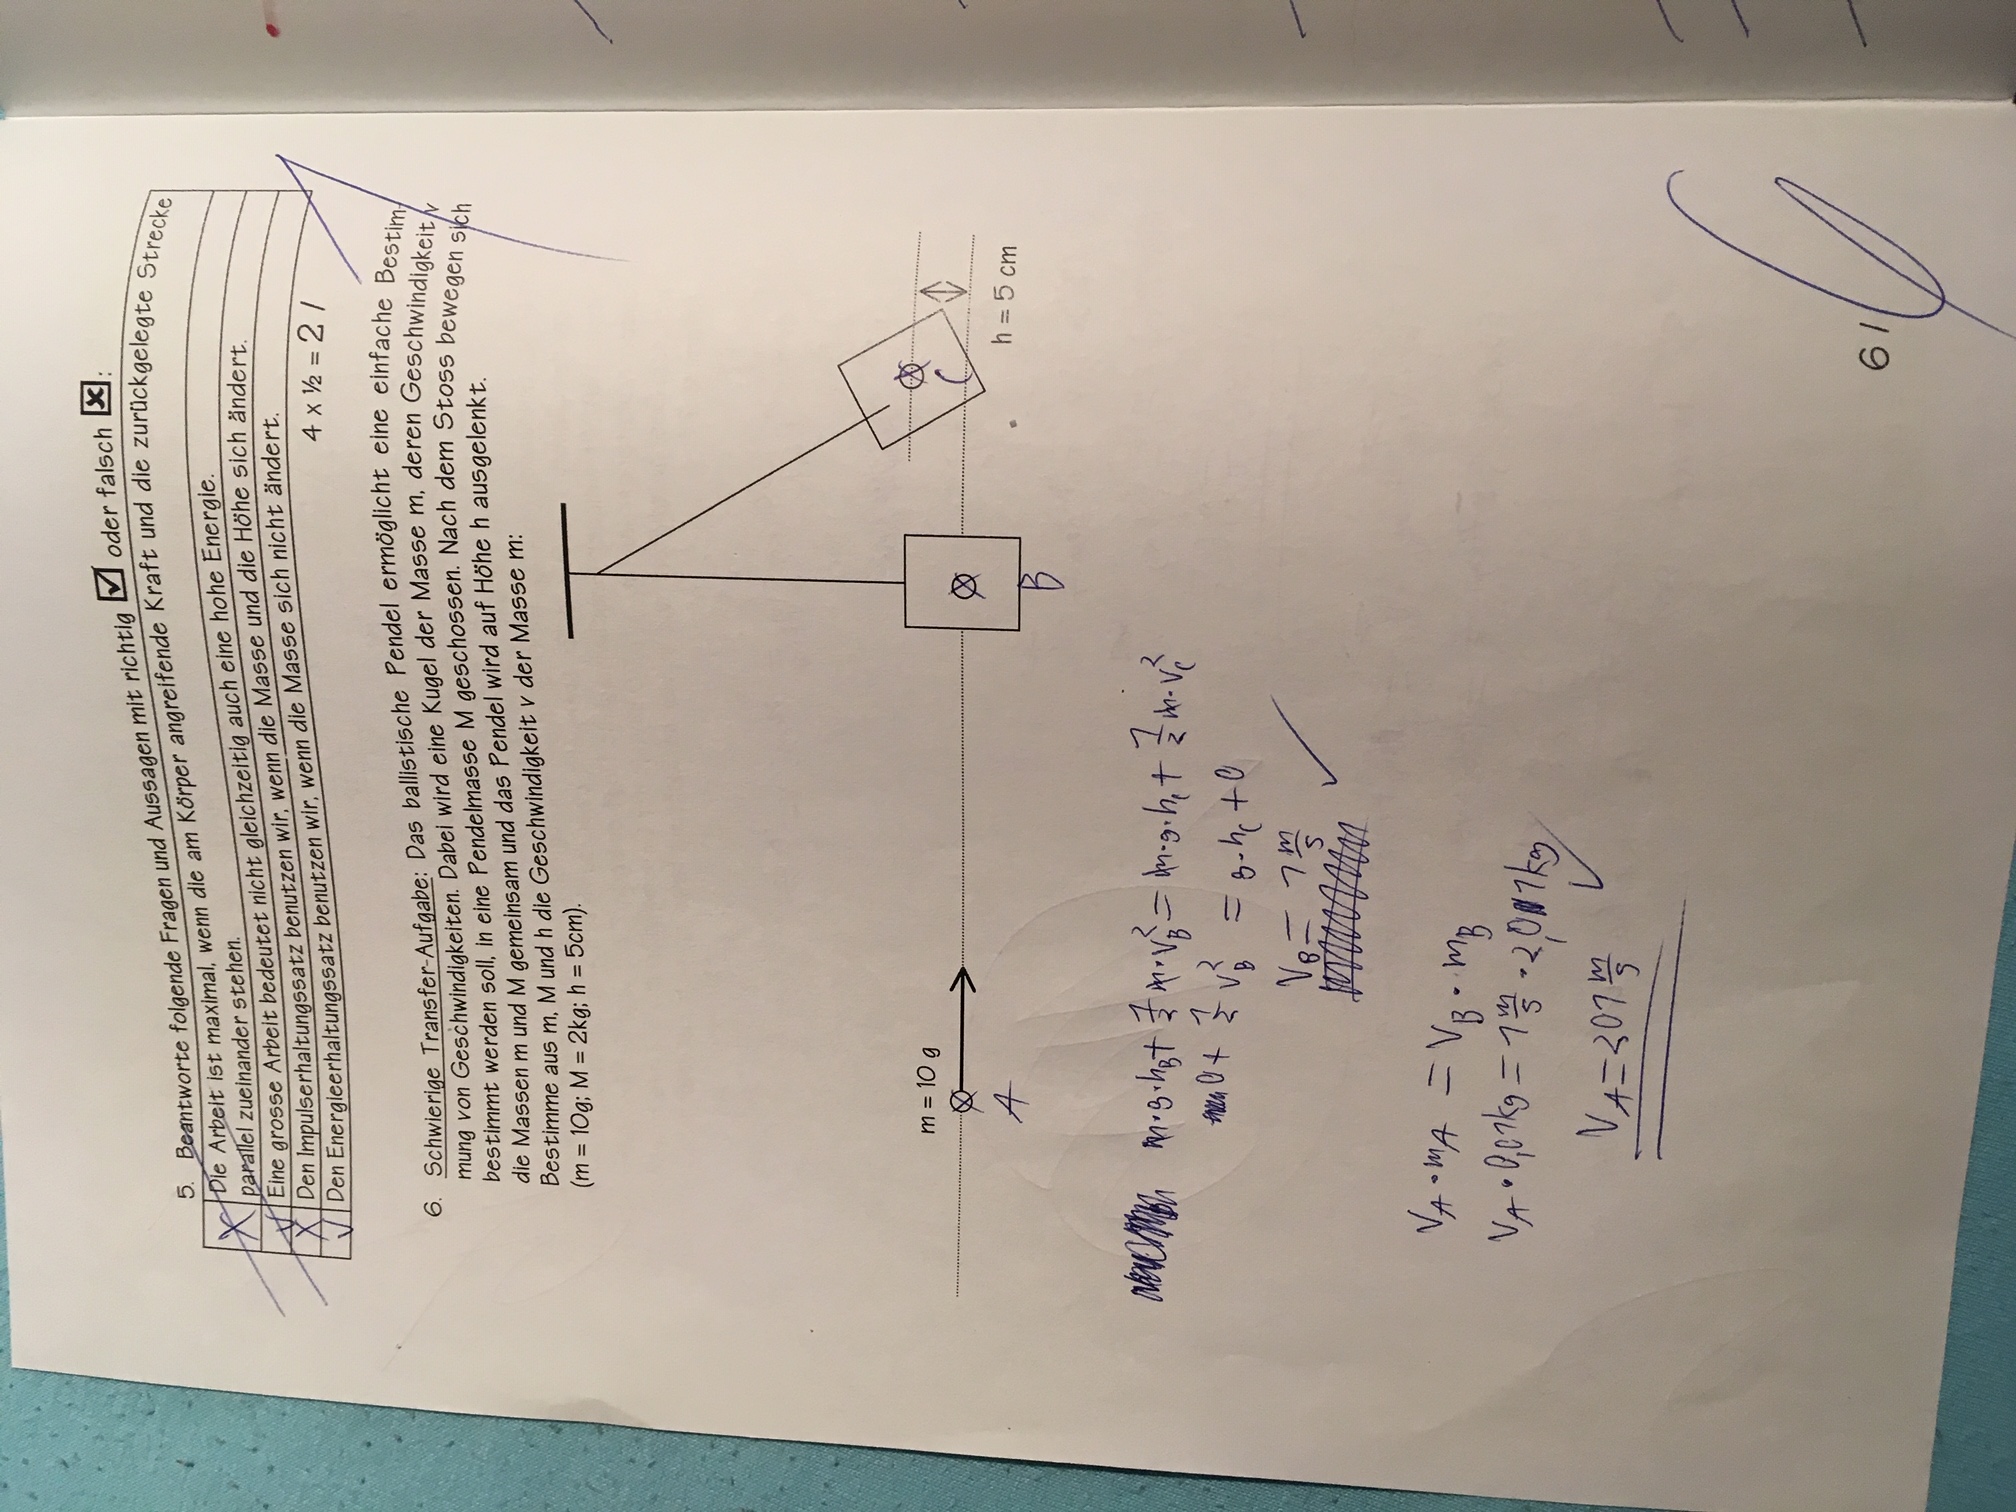 5. Beantworte folgende Fragen und Aussagen mit richtig ☑ oder falsch ☒:
X Die Arbeit ist maximal, wenn die am Körper angreifende Kraft und die zurückgelegte Strecke
parallel zueinander stehen.
✓ Eine grosse Arbeit bedeutet nicht gleichzeitig auch eine hohe Energie.
X Den Impulserhaltungssatz benutzen wir, wenn die Masse und die Höhe sich ändert.
✓ Den Energieerhaltungssatz benutzen wir, wenn die Masse sich nicht ändert.
4 x ½ = 2 / 1
6. Schwierige Transfer-Aufgabe: Das ballistische Pendel ermöglicht eine einfache Bestim-
mung von Geschwindigkeiten. Dabei wird eine Kugel der Masse m, deren Geschwindigkeit v
bestimmt werden soll, in eine Pendelmasse M geschossen. Nach dem Stoss bewegen sich
die Massen m und M gemeinsam und das Pendel wird auf Höhe h ausgelenkt.
Bestimme aus m, M und h die Geschwindigkeit v der Masse m:
(m = 10g; M = 2kg; h = 5cm).
m = 10 g
A
B
C
h = 5 cm
m·g·h_B + 1/2 m·v_B² = m·g·h_C + 1/2 m·v_C²
0 + 1/2 v_B² = g·h_C + 0
v_B = 1 m/s ✓
v_A · m_A = v_B · m_B
v_A · 0,01kg = 1 m/s · 2,01kg
v_A = 201 m/s ✓
6 / 6